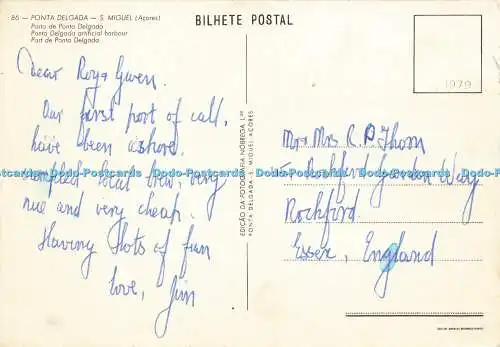 86 — PONTA DELGADA — S. MIGUEL (Açores)
Porto de Ponta Delgada
Ponta Delgada artificial harbour
Port de Ponta Delgada
BILHETE POSTAL
1979
Dear Roy & Gwen.
Our first port of call,
have been ashore.
Sampled local brew, very
nice and very cheap.
Having lots of fun
love, Jim
EDIÇÃO DA FOTOGRAFIA NÓBREGA L.DA
PONTA DELGADA - S. MIGUEL - AÇORES
Mr & Mrs R. P. Thorn
Rochford Garden Way
Rochford.
Essex, England
Dodo-Postcards.com Dodo-Postcards.com Dodo-Postcards.com Dodo-Postcards.com